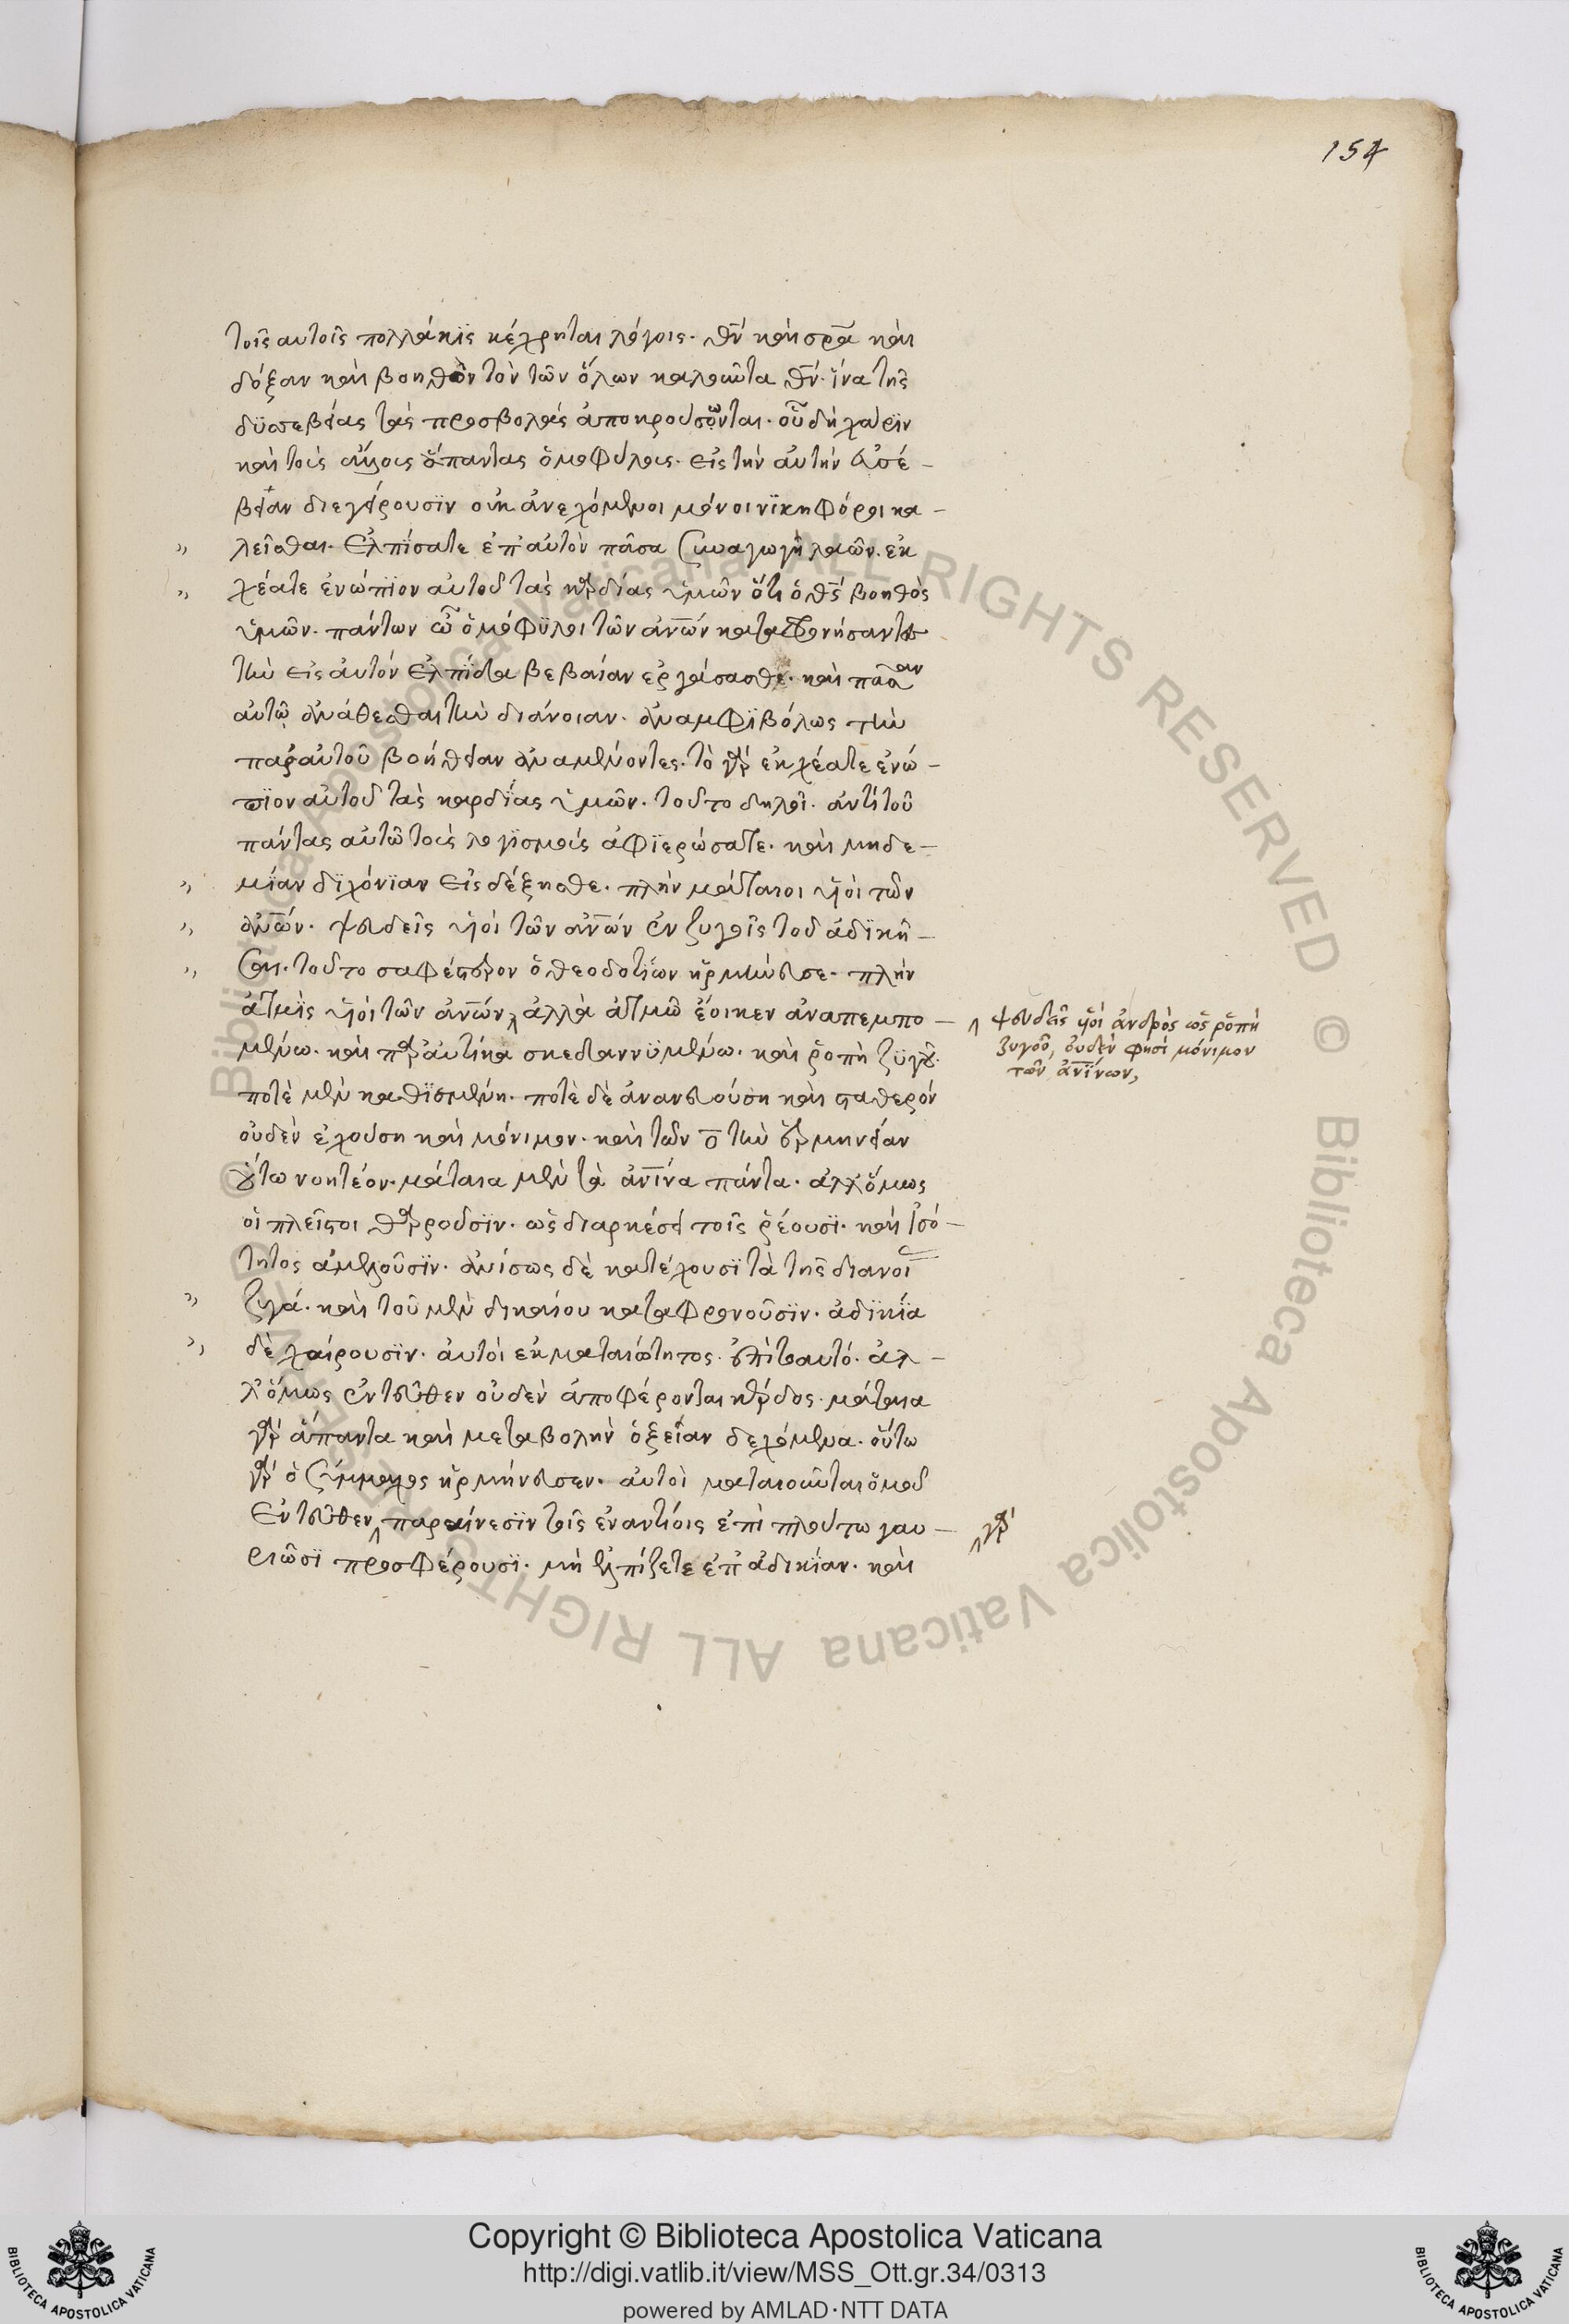 154
τοῖς αὐτοῖς πολλάκϊς κέχρηται λόγοις· θν̅ καὶ σρ̅α καὶ
δόξαν καὶ βοηθὸν τὸν τῶν ὅλων καλοῦντα θν̅· ἵνα τῆς
δϋσσεβείας τὰς προσβολὰς ἀποκρούσωνται· οὗ δὴ χάρϊν
καὶ τοὺς ἄλλους ἅπαντας ὁμοφύλους· εἰς τὴν αὐτὴν εὐσέ-
βειαν διεγείρουσϊν οὐκ ἀνεχόμενοι μόνοι νϊκηφόροι κα-
» λεῖσθαι· Ἐλπίσατε ἐπ' αὐτὸν πᾶσα συναγωγὴ λαῶν· ἐκ
» χέατε ἐνώπϊον αὐτοῦ τὰς καρδίας ὑμῶν ὅτι ὁ θς̅ βοηθὸς
ὑμῶν· πάντων ὦ ὁμόφϋλοι τῶν ἀν̅ων καταφρονήσαντες
τὴν εἰς αὐτὸν ἐλπίδα βεβαίαν ἐργάσασθε· καὶ πᾶσαν
αὐτῷ ἀνάθεσθαι τὴν διάνοιαν· ἀναμφϊβόλως τὴν
παρ' αὐτοῦ βοήθειαν ἀναμένοντες· τὸ γὰρ ἐκχέατε ἐνώ-
πϊον αὐτοῦ τὰς καρδίας ὑμῶν· τοῦτο δηλοῖ· ἀντὶ τοῦ
πάντας αὐτῷ τοὺς λογϊσμοὺς ἀφϊερώσατε· καὶ μηδε-
» μίαν δϊχόνϊαν εἰσδέξησθε· πλὴν μάταιοι υἱοὶ τῶν
» ἀν̅ων· ψευδεῖς υἱοὶ τῶν ἀν̅ων ἐν ζυγοῖς τοῦ ἀδϊκῆ-
» σαι· τοῦτο σαφέστερον ὁ θεοδοτίων ἡρμήνευσε· πλὴν
ἀτμὶς υἱοὶ τῶν ἀν̅ων, ἀλλὰ ἀτμῷ ἔοικεν ἀναπεμπο-
μένω· καὶ παραυτίκα σκεδαννϋμένω· καὶ ῥοπὴ ζϋγοῦ·
ποτὲ μὲν καθϊσμένη· ποτὲ δὲ ἀνανευούση καὶ σταθερὸν
οὐδὲν ἐχούση καὶ μόνιμον· καὶ τῶν ο̅ τὴν ἑρμηνείαν
οὕτω νοητέον· μάταια μὲν τὰ ἀν̅ινα πάντα· ἀλλ' ὅμως
οἱ πλεῖστοι θαρροῦσϊν· ὡς διαρκέσει τοῖς ῥέουσι· καὶ ἰσό-
τητος ἀμελοῦσϊν· ἀνίσως δὲ κατέχουσϊ τὰ τῆς διανοί
» ζυγά· καὶ τοῦ μὲν δικαίου καταφρονοῦσϊν· ἀδϊκία
» δὲ χαίρουσϊν· αὐτοὶ ἐκ ματαιότητος· ἐπιτοαυτό· ἀλ-
λ' ὅμως ἐντεῦθεν οὐδὲν ἀποφέρονται κέρδος· μάταια
γὰρ ἅπαντα καὶ μεταβολὴν ὀξεῖαν δεχόμενα· οὕτω
γὰρ ὁ Σύμμαχος ἡρμήνευσεν· αὐτοὶ ματαιοῦνται ὁμοῦ
Ἐντεῦθεν παραίνεσϊν τοῖς ἐναντίοις ἐπὶ πλούτω γαυ-
ριῶσϊ προσφέρουσϊ· μὴ ἐλπίζετε ἐπ' ἀδικίαν· καὶ
ψευδεῖς υἱοὶ ἀνδρὸς ὡς ῥοπὴ
ζυγοῦ, οὐδὲν φησὶ μόνιμον
τῶν ἀν̅ίνων,
γὰρ
Copyright © Biblioteca Apostolica Vaticana
http://digi.vatlib.it/view/MSS_Ott.gr.34/0313
powered by AMLAD·NTT DATA
BIBLIOTECA APOSTOLICA VATICANA
BIBLIOTECA APOSTOLICA VATICANA
© Biblioteca Apostolica Vaticana ALL RIGHTS RESERVED © Biblioteca Apostolica Vaticana ALL RIGHTS RESERVED